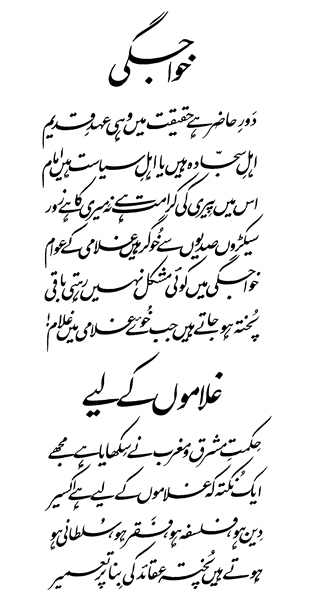 خواجگی
دَورِ حاضر ہے حقیقت میں وہی عہدِ قدیم
اہلِ سجّادہ ہیں یا اہلِ سیاست ہیں امام
اس میں پیری کی کرامت ہے نہ میری کا ہے زور
سیکڑوں صدیوں سے خُوگر ہیں غلامی کے عوام
خواجگی میں کوئی مشکل نہیں رہتی باقی
پُختہ ہو جاتے ہیں جب خُوئے غلامی میں غلام!
غلاموں کے لیے
حِکمتِ مشرق و مغرب نے سِکھایا ہے مجھے
ایک نُکتہ کہ غلاموں کے لیے ہے اِکسیر
دِین ہو، فلسفہ ہو، فَقر ہو، سُلطانی ہو
ہوتے ہیں پُختہ عقائد کی بِنا پر تعمیر